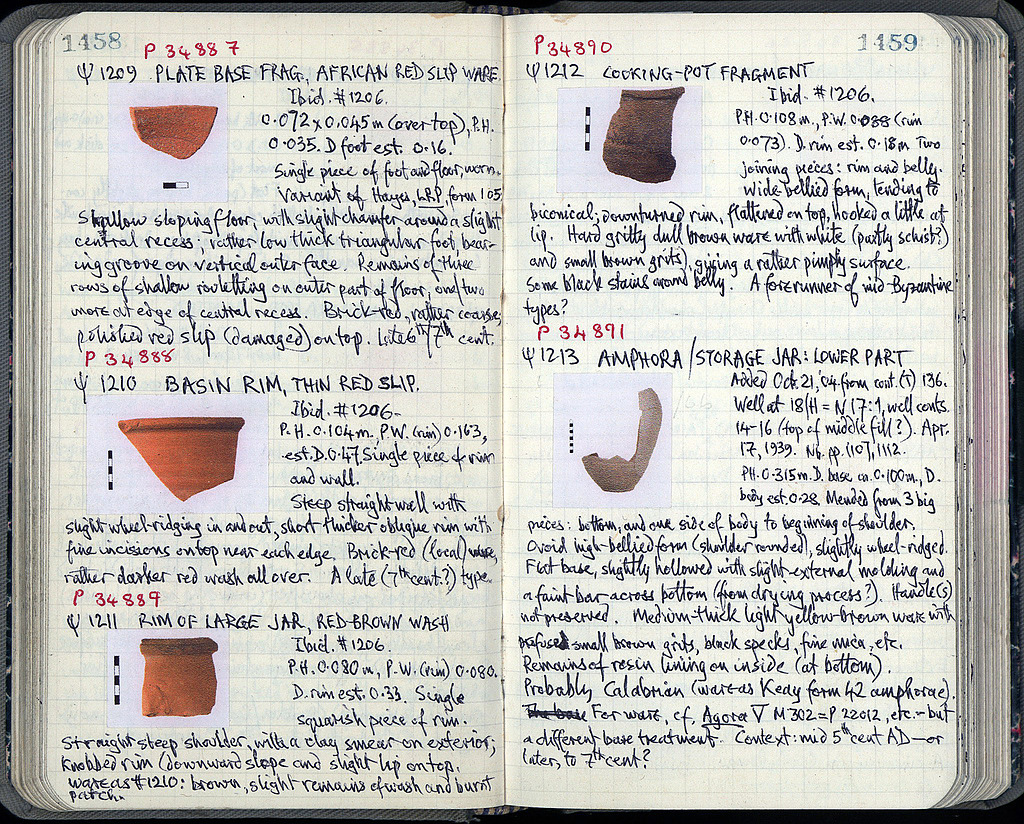 1458
P 34887
Ψ 1209 PLATE BASE FRAG., AFRICAN RED SLIP WARE.
Ibid. #1206.
0.072 x 0.045 m (over top), P.H.
0.035. D foot est. 0.16.
Single piece of foot and floor, worn.
Variant of Hayes, LRP, form 105
Shallow sloping floor, with slight chamfer around a slight
central recess; rather low thick triangular foot, bear-
ing groove on vertical outer face. Remains of three
rows of shallow rouletting on outer part of floor, one/two
more at edge of central recess. Brick-red, rather coarse,
polished red slip (damaged) on top. Late 6th/7th cent.
P 34888
Ψ 1210 BASIN RIM, THIN RED SLIP.
Ibid. #1206.
P.H. 0.104 m., P.W. (rim) 0.163,
est. D. 0.47. Single piece of rim
and wall.
Steep straight wall with
slight wheel-ridging in and out, short thicker oblique rim with
fine incisions on top near each edge. Brick-red (local) ware,
rather darker red wash all over. A late (7th cent.?) type.
P 34889
Ψ 1211 RIM OF LARGE JAR, RED-BROWN WASH
Ibid. #1206.
P.H. 0.080 m., P.W. (rim) 0.080.
D. rim est. 0.33. Single
squarish piece of rim.
Straight steep shoulder, with a clay smear on exterior;
knobbed rim (downward slope and slight lip on top.
Ware as #1210: brown, slight remains of wash and burnt
patch.
1459
P 34890
Ψ 1212 COOKING-POT FRAGMENT
Ibid. #1206.
P.H. 0.108 m., P.W. 0.088 (rim
0.073). D. rim est. 0.18 m. Two
joining pieces: rim and belly.
Wide-bellied form, tending to
biconical; downturned rim, flattened on top, hooked a little at
lip. Hard gritty dull brown ware with white (partly schist?)
and small brown grits, giving a rather pimply surface.
Some black stains around belly. A forerunner of mid-Byzantine
types?
P 34891
Ψ 1213 AMPHORA/STORAGE JAR: LOWER PART
Added Oct. 21, '04 from cont. (T) 136.
Well at 18/H = N 17:1, well conts.
14-16 (top of middle fill?). Apr.
17, 1939. Nb. pp. 1107, 1112.
PH. 0.315 m. D. base ca. 0.100 m, D.
body est. 0.28. Mended from 3 big
pieces: bottom, and one side of body to beginning of shoulder.
Ovoid high-bellied form (shoulder rounded), slightly wheel-ridged.
Flat base, slightly hollowed with slight external molding and
a faint bar across bottom (from drying process?). Handle(s)
not preserved. Medium-thick light yellow-brown ware with
profuse small brown grits, black specks, fine mica, etc.
Remains of resin lining on inside (at bottom).
Probably Calabrian (ware as Keay form 42 amphorae).
The base For ware, cf. Agora V M 302 = P 22012, etc. - but
a different base treatment. Context: mid 5th cent AD — or
later, to 7th cent?